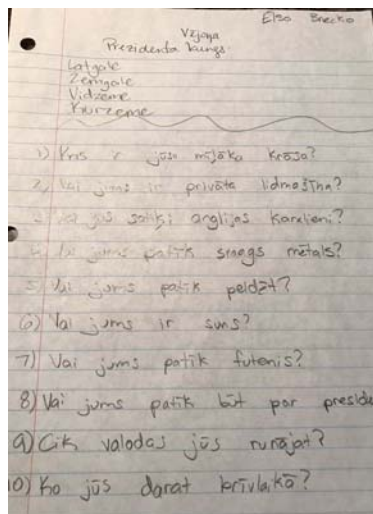 Elsa Brecko
Vējoņa
Prezidenta kungs
Latgale
Zemgale
Vidzeme
Kurzeme
1) Kas ir jūsu mīļāka krāsa?
2) Vai jums ir privāta lidmašīna?
3) Vai jūs satiki anglijas karalieni?
4) Vai jums patīk smags mētals?
5) Vai jums patīk peldēt?
6) Vai jums ir suns?
7) Vai jums patīk futenis?
8) Vai jums patīk būt par preside
9) Cik valodas jūs runājat?
10) Ko jūs darat brīvlaikā?